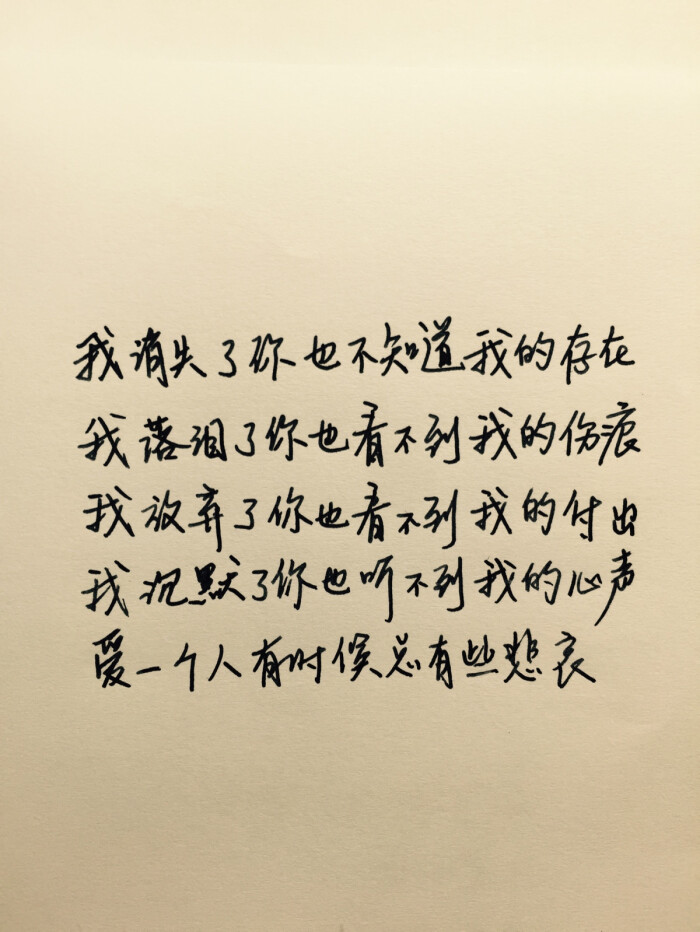 我消失了你也不知道我的存在
我落泪了你也看不到我的伤痕
我放弃了你也看不到我的付出
我沉默了你也听不到我的心声
爱一个人有时候总有些悲哀